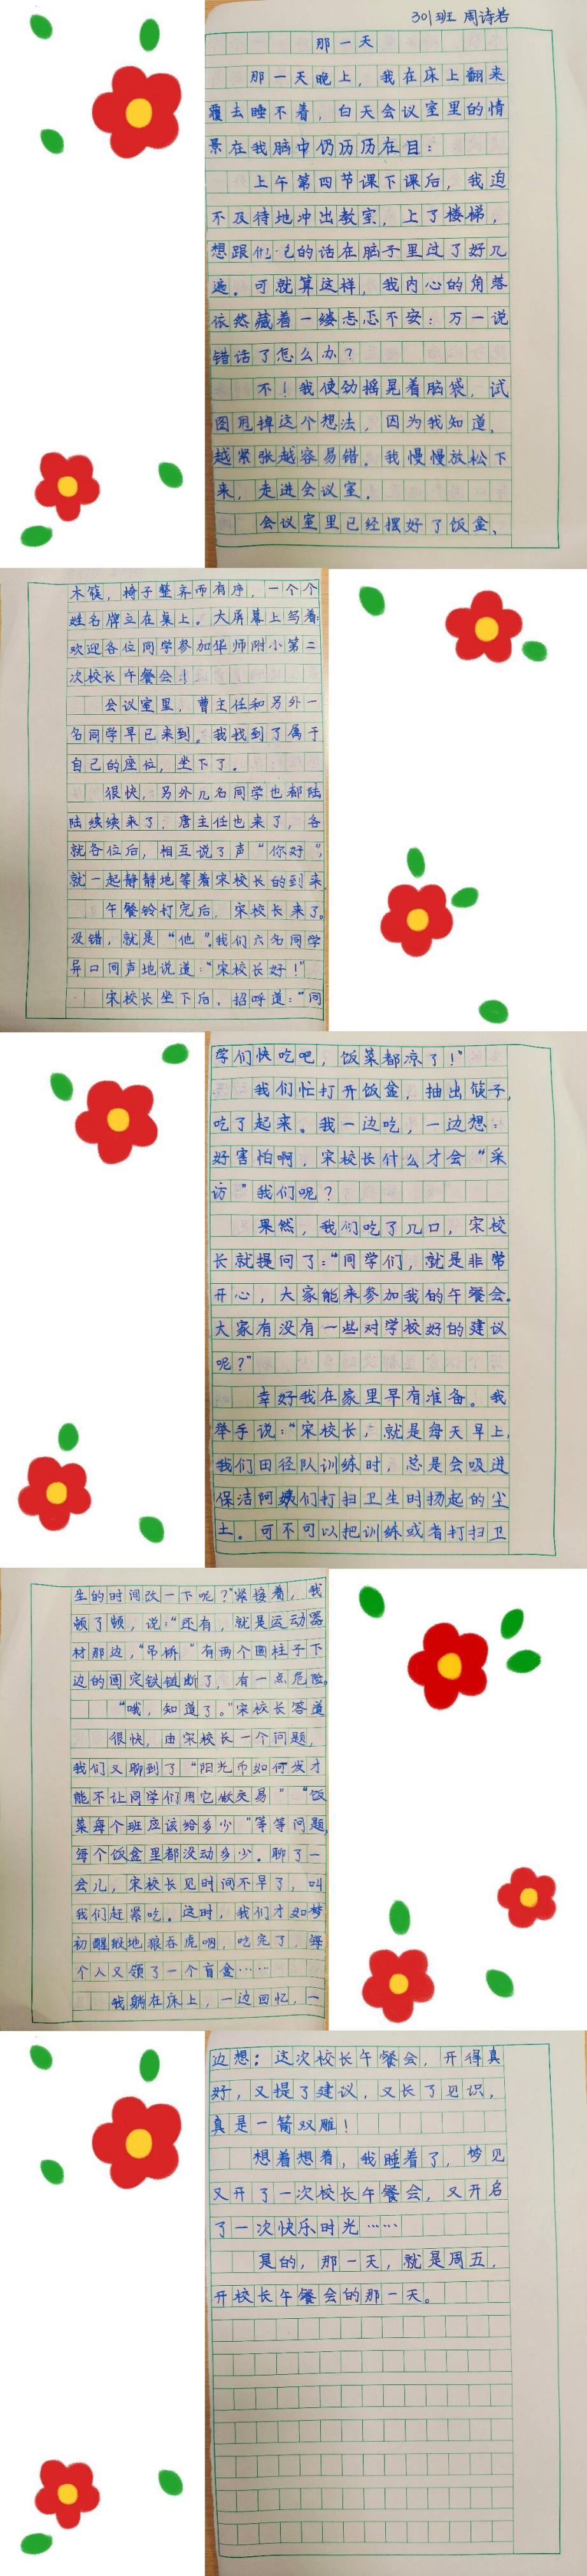 301班 周诗若
那一天
那一天晚上，我在床上翻来
覆去睡不着，白天会议室里的情
景在我脑中仍历历在目：
上午第四节课下课后，我迫
不及待地冲出教室，上了楼梯，
想跟他说的话在脑子里过了好几
遍。可就算这样，我内心的角落
依然藏着一缕忐忑不安：万一说
错话了怎么办？
不！我使劲摇晃着脑袋，试
图甩掉这个想法，因为我知道，
越紧张越容易错。我慢慢放松下
来，走进会议室。
会议室里已经摆好了饭盒、
木筷，椅子整齐而有序，一个个
姓名牌立在桌上。大屏幕上写着：
欢迎各位同学参加华师附小第二
次校长午餐会！
会议室里，曹主任和另外一
名同学早已来到。我找到了属于
自己的座位，坐下了。
很快，另外几名同学也都陆
陆续续来了，唐主任也来了，各
就各位后，相互说了声“你好”，
就一起静静地等着宋校长的到来。
午餐铃打完后，宋校长来了。
没错，就是“他”。我们六名同学
异口同声地说道：“宋校长好！”
宋校长坐下后，招呼道：“同
学们快吃吧，饭菜都凉了！”
我们忙打开饭盒，抽出筷子，
吃了起来。我一边吃，一边想：
好害怕啊，宋校长什么才会“采
访”我们呢？
果然，我们吃了几口，宋校
长就提问了：“同学们，就是非常
开心，大家能来参加我的午餐会。
大家有没有一些对学校好的建议
呢？”
幸好我在家里早有准备。我
举手说：“宋校长，就是每天早上，
我们田径队训练时，总是会吸进
保洁阿姨们打扫卫生时扬起的尘
土。可不可以把训练或者打扫卫
生的时间改一下呢？”紧接着，我
顿了顿，说：“还有，就是运动器
材那边，“吊桥”有两个圆柱子下
边的固定铁链断了，有一点危险。
“哦，知道了。”宋校长答道
很快，由宋校长一个问题，
我们又聊到了“阳光币如何发才
能不让同学们用它做交易”“饭
菜每个班应该给多少”等等问题，
每个饭盒里都没动多少。聊了一
会儿，宋校长见时间不早了，叫
我们赶紧吃。这时，我们才如梦
初醒般地狼吞虎咽，吃完了，每
个人又领了一个盲盒……
我躺在床上，一边回忆，一
边想：这次校长午餐会，开得真
好，又提了建议，又长了见识，
真是一箭双雕！
想着想着，我睡着了，梦见
又开了一次校长午餐会，又开启
了一次快乐时光……
是的，那一天，就是周五，
开校长午餐会的那一天。